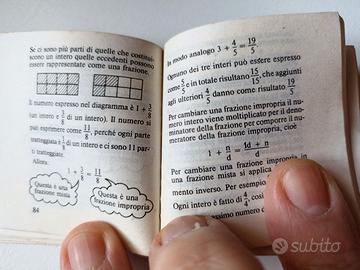 Se ci sono più parti di quelle che costitui-
scono un intero quelle eccedenti possono
essere rappresentate come una frazione.
Il numero espresso nel diagramma è 1 + 3/8
(un intero + 3/8 di un intero). Il numero si
può esprimere come 11/8, perché ogni parte
tratteggiata è 1/8 di un intero e ci sono 11 parti
tratteggiate.
Allora.
1 + 3/8 = 11/8
Questa è una
frazione mista
Questa è una
frazione impropria
84
In modo analogo 3 + 4/5 = 19/5
Ognuno dei tre interi può essere espresso
come 5/5 e in totale risultano 15/15, che aggiunti
agli ulteriori 4/5 danno come risultato 19/5
Per cambiare una frazione impropria il nu-
mero intero viene moltiplicato per il deno-
minatore della frazione per comporre il nu-
meratore della frazione impropria, cioè
1 + n/d = 1d + n/d
Per cambiare una frazione impropria in
una frazione mista si applica
mento inverso. Per esempio
Ogni intero è fatto di 4/4,
numero di
subito